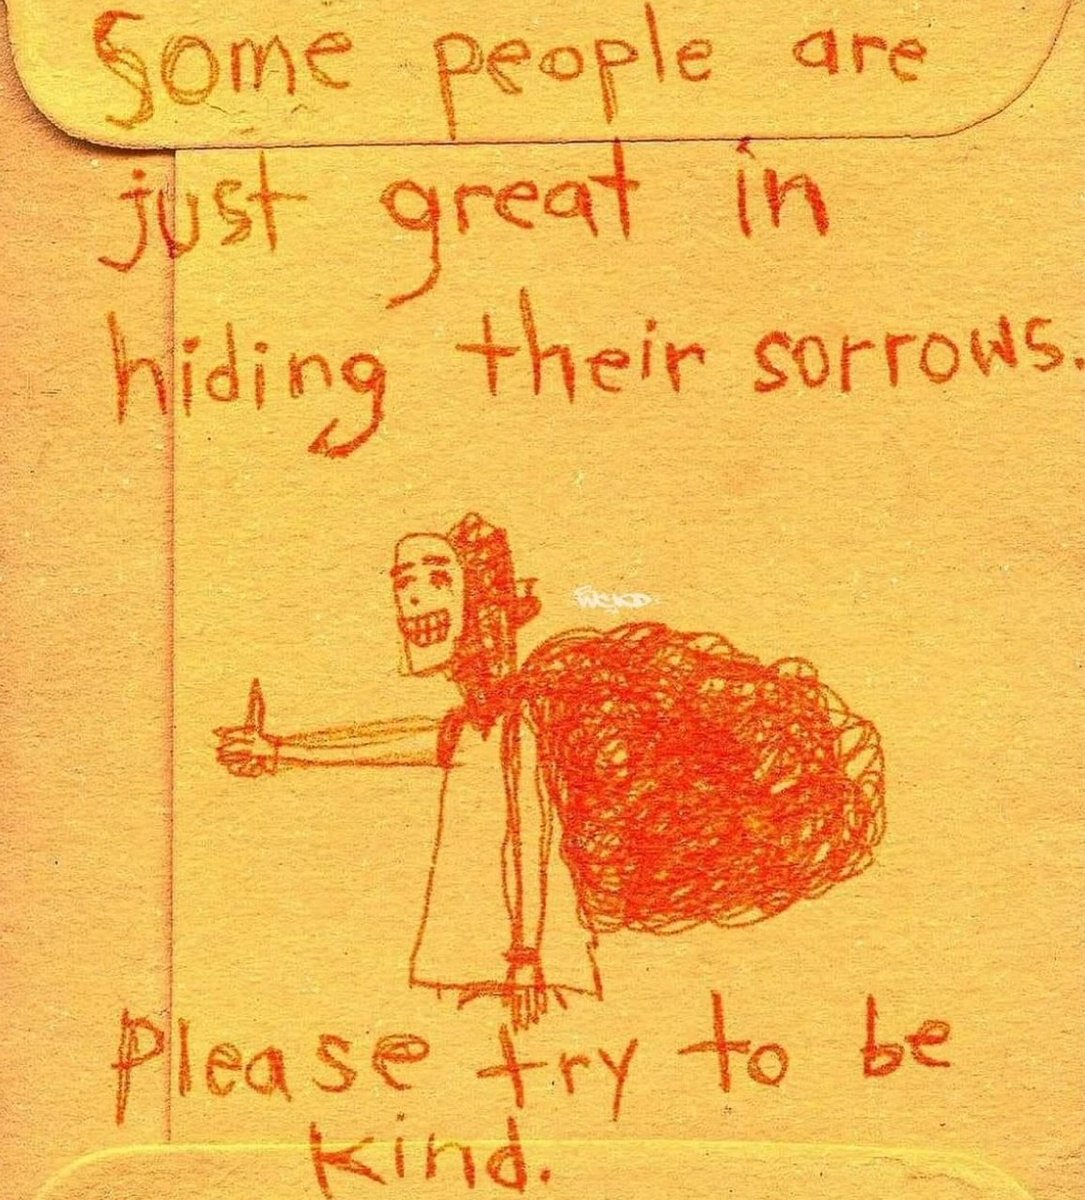 Some people are
just great in
hiding their sorrows.
Please try to be
kind.